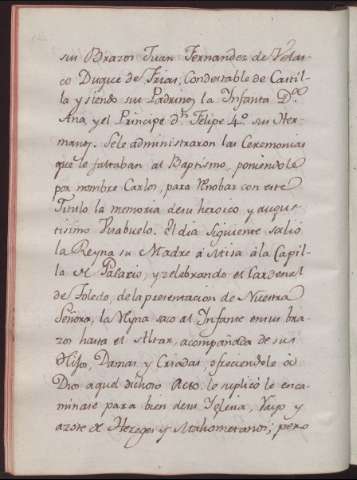 sus Brazos Juan Fernandez de Velas-
co Duque de Frias, Condestable de Castil-
la y siendo sus Padrinos la Infanta D.ª
Ana, y el Principe d.n Felipe 4.º sus Her-
manos. Sele administraron las Ceremonias
que le faltaban al Baptismo, poniendole
por nombre Carlos, para renobar con este
Titulo la memoria desu heroico y augus-
tisimo Visabuelo. El dia siguiente salió
la Reyna su Madre à Misa à la Capil-
la de Palacio, y celebrando el Cardenal
de Toledo, dela presentacion de Nuestra
Señora, la Reyna saco al Infante ensus bra-
zos hasta el Altar, acompañada de sus
Hijos, Damas y Criadas, ofreciendole à
Dios aquel dichoso Acto, le suplicò le enca-
minase para bien desu Yglesia, y
azote de Hereges y Mahometanos; pero